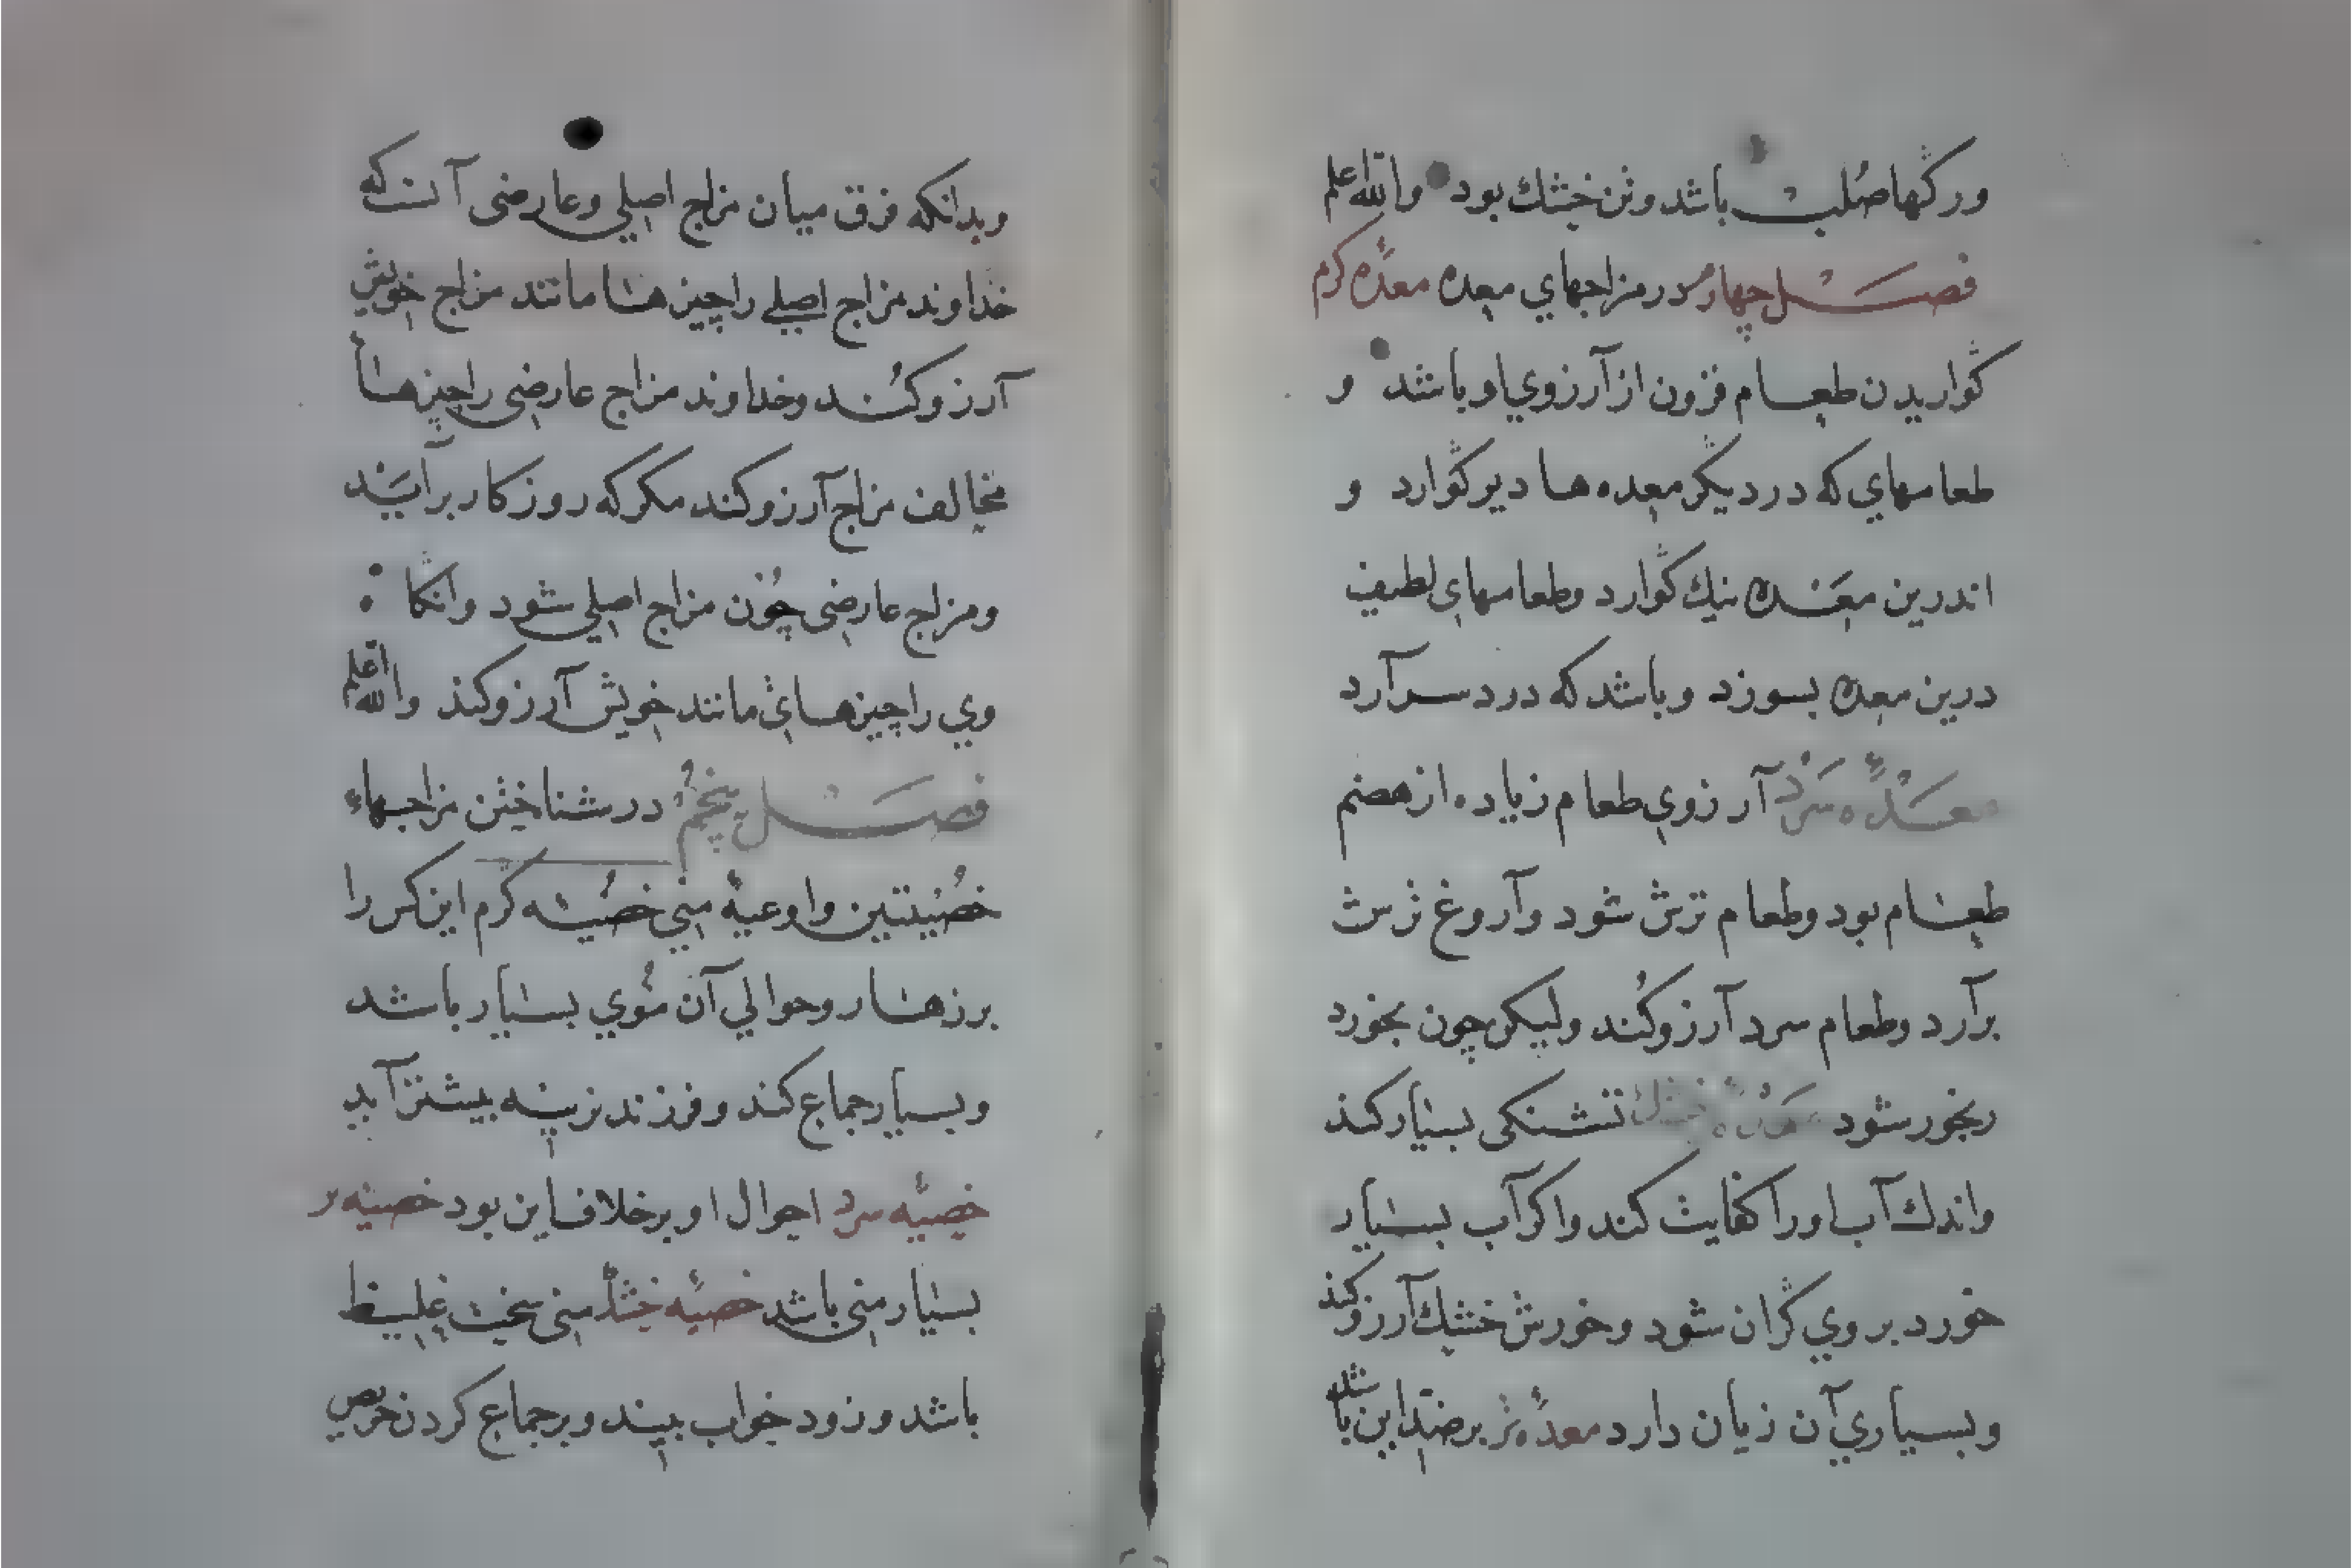 ورگها صُلب باشد وتن خشك بود والله اعلم
فصل چهارم در مزاجهاي معده معدهٔ گرم
گواریدن طعام فزون از آرزوي او باشد و
طعامهاي که در دیگر معده ها دیر گوارد و
اندرین معده نیك گوارد وطعامهاي لطیف
درین معده بسوزد وباشد که درد سر آرد
معدهٔ سرد آرزوي طعام زیاده از هضم
طعام بود وطعام ترش شود وآروغ ترش
برآرد وطعام سرد آرزو کُند ولیکن چون بخورد
رنجور شود معدهٔ خشك تشنکی بسیار کند
واندك آب اورا کفایت کند واکر آب بسیار
خورد بر وي گران شود وخورش خشك آرزو کند
وبسیاري آن زیان دارد معدهٔ تر بر ضدّ این باشد
وبدانکه فرق میان مزاج اصلي وعارضی آنست که
خداوند مزاج اصلے را چیزها مانند مزاج خویش
آرزو کُند وخداوند مزاج عارضی را چیزها
مخالف مزاج آرزو کند مکر که روزکار برآید
ومزاج عارضی چُون مزاج اصلي شود وانگا
وي را چیزهاي مانند خویش آرزو کند والله اعلم
فصل پنجم در شناختن مزاجهاء
خصیتین واوعیهٔ منی خصیهٔ گرم این کس را
بر زهار وحوالي آن مُوي بسیار باشد
وبسیار جماع کند وفرزند نرینه بیشتر آید
خصیهٔ سرد احوال او بر خلاف این بود خصیهٔ تر
بسیار منی باشد خصیهٔ خشك منی سخت غلیظ
باشد وزود خواب بیند وبر جماع کردن حریص